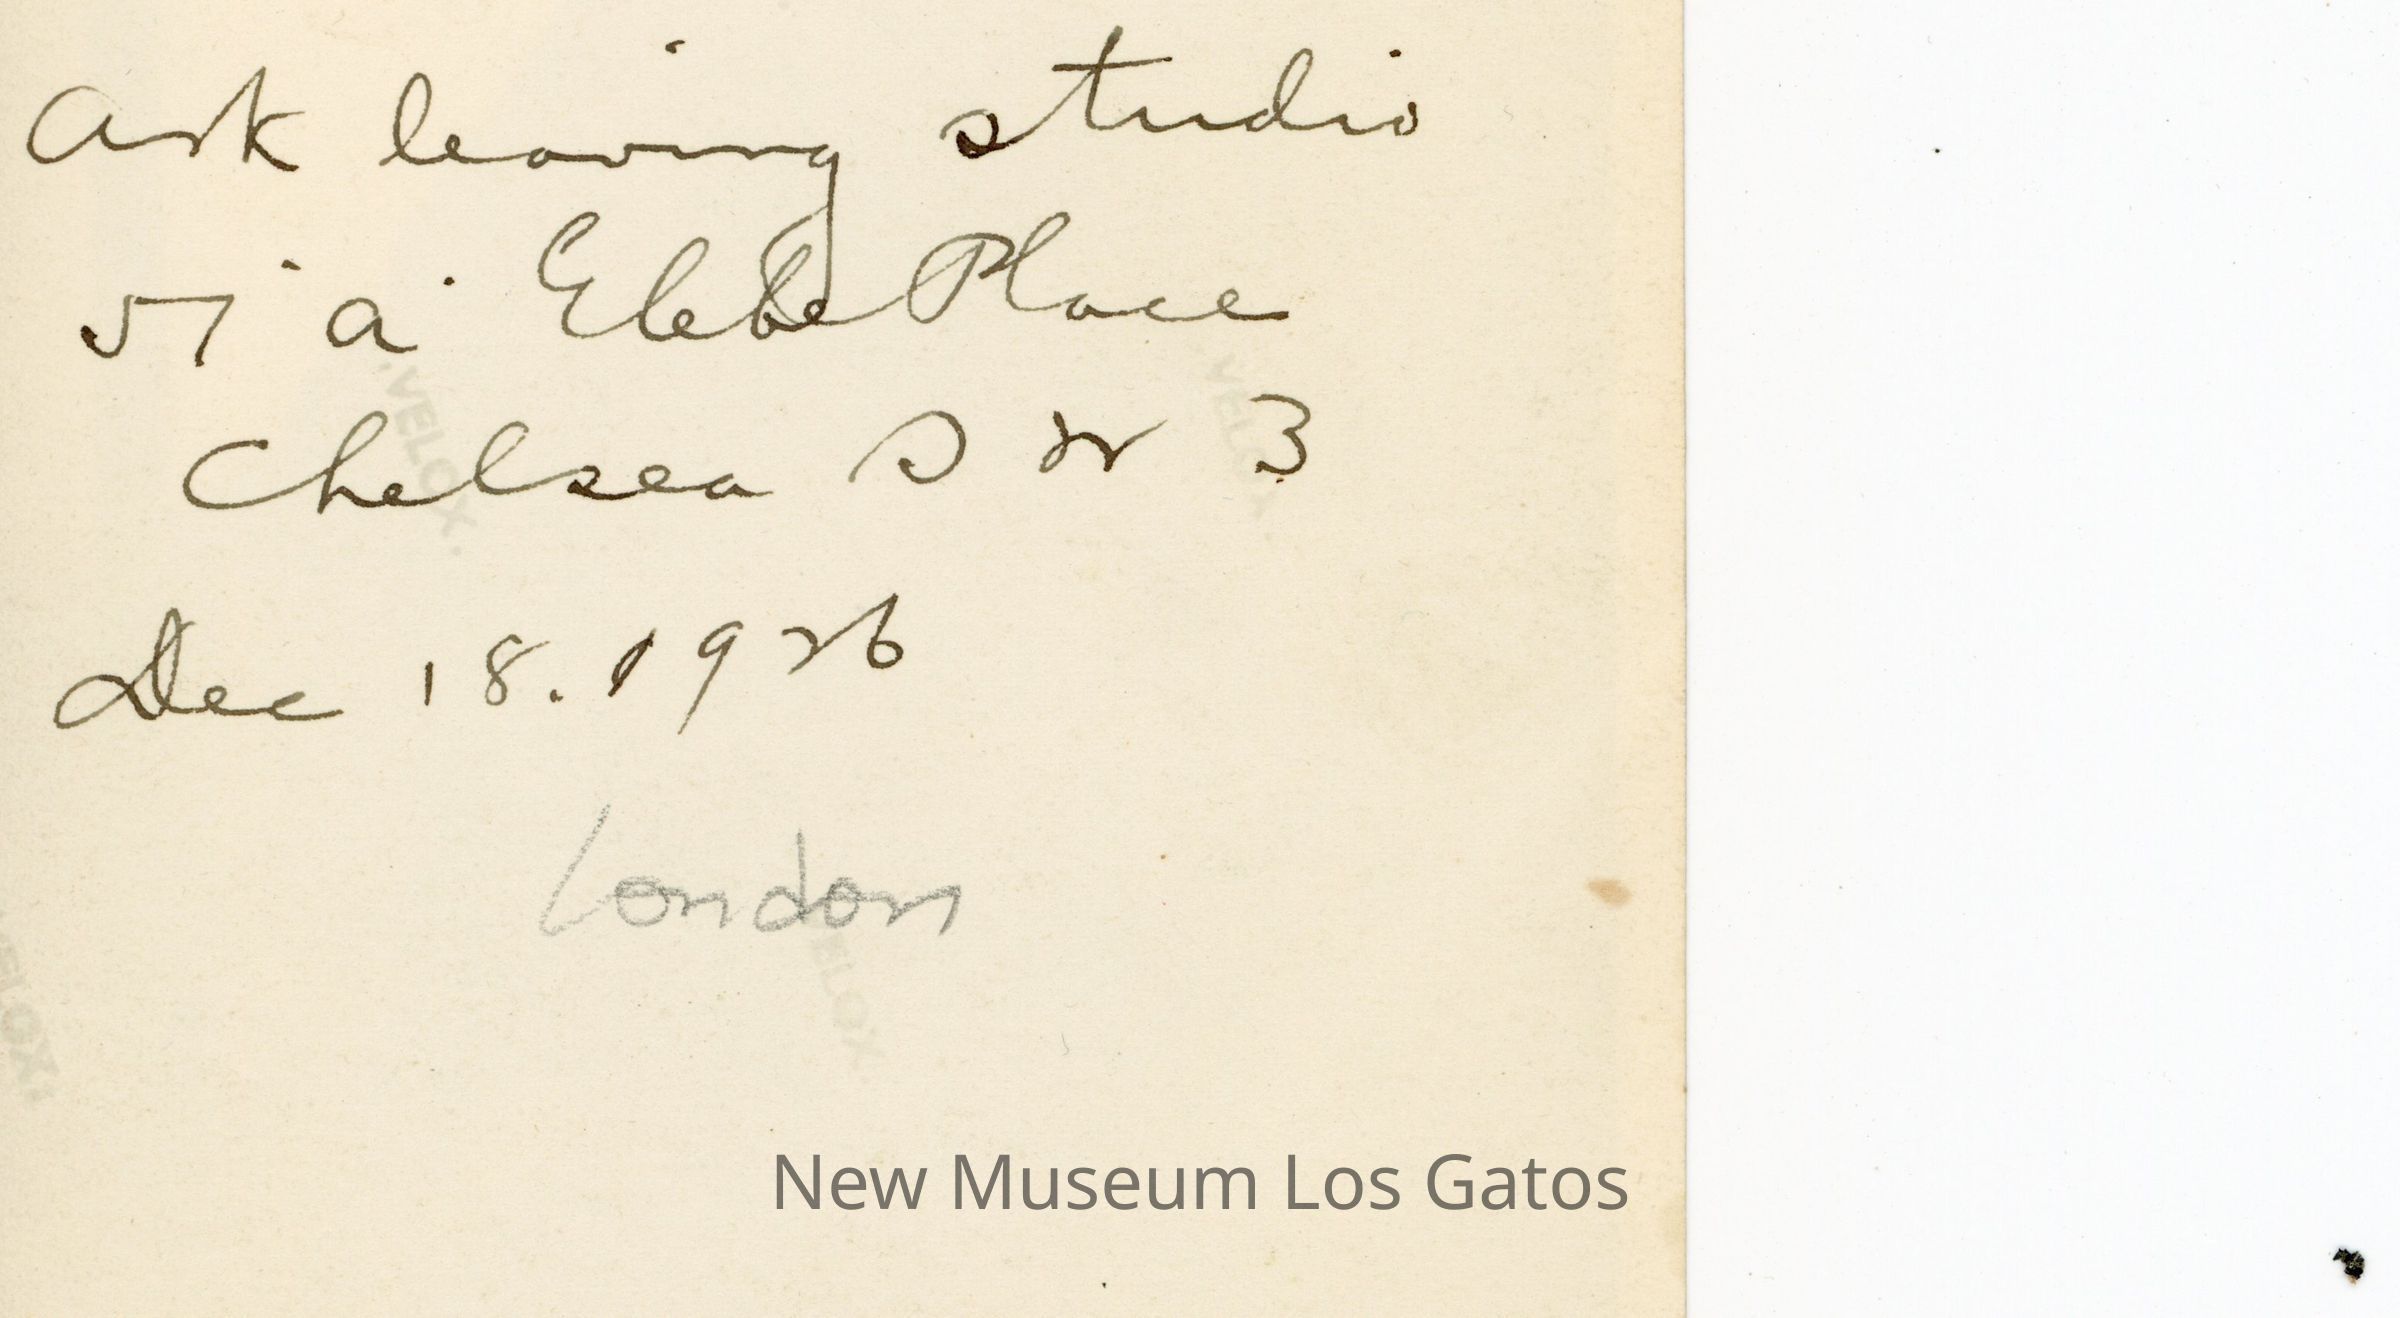 Ark leaving studio
51 a. Glebe Place
Chelsea S W 3
Dec 18. 1926
London
VELOX
VELOX
VELOX
VELOX
New Museum Los Gatos